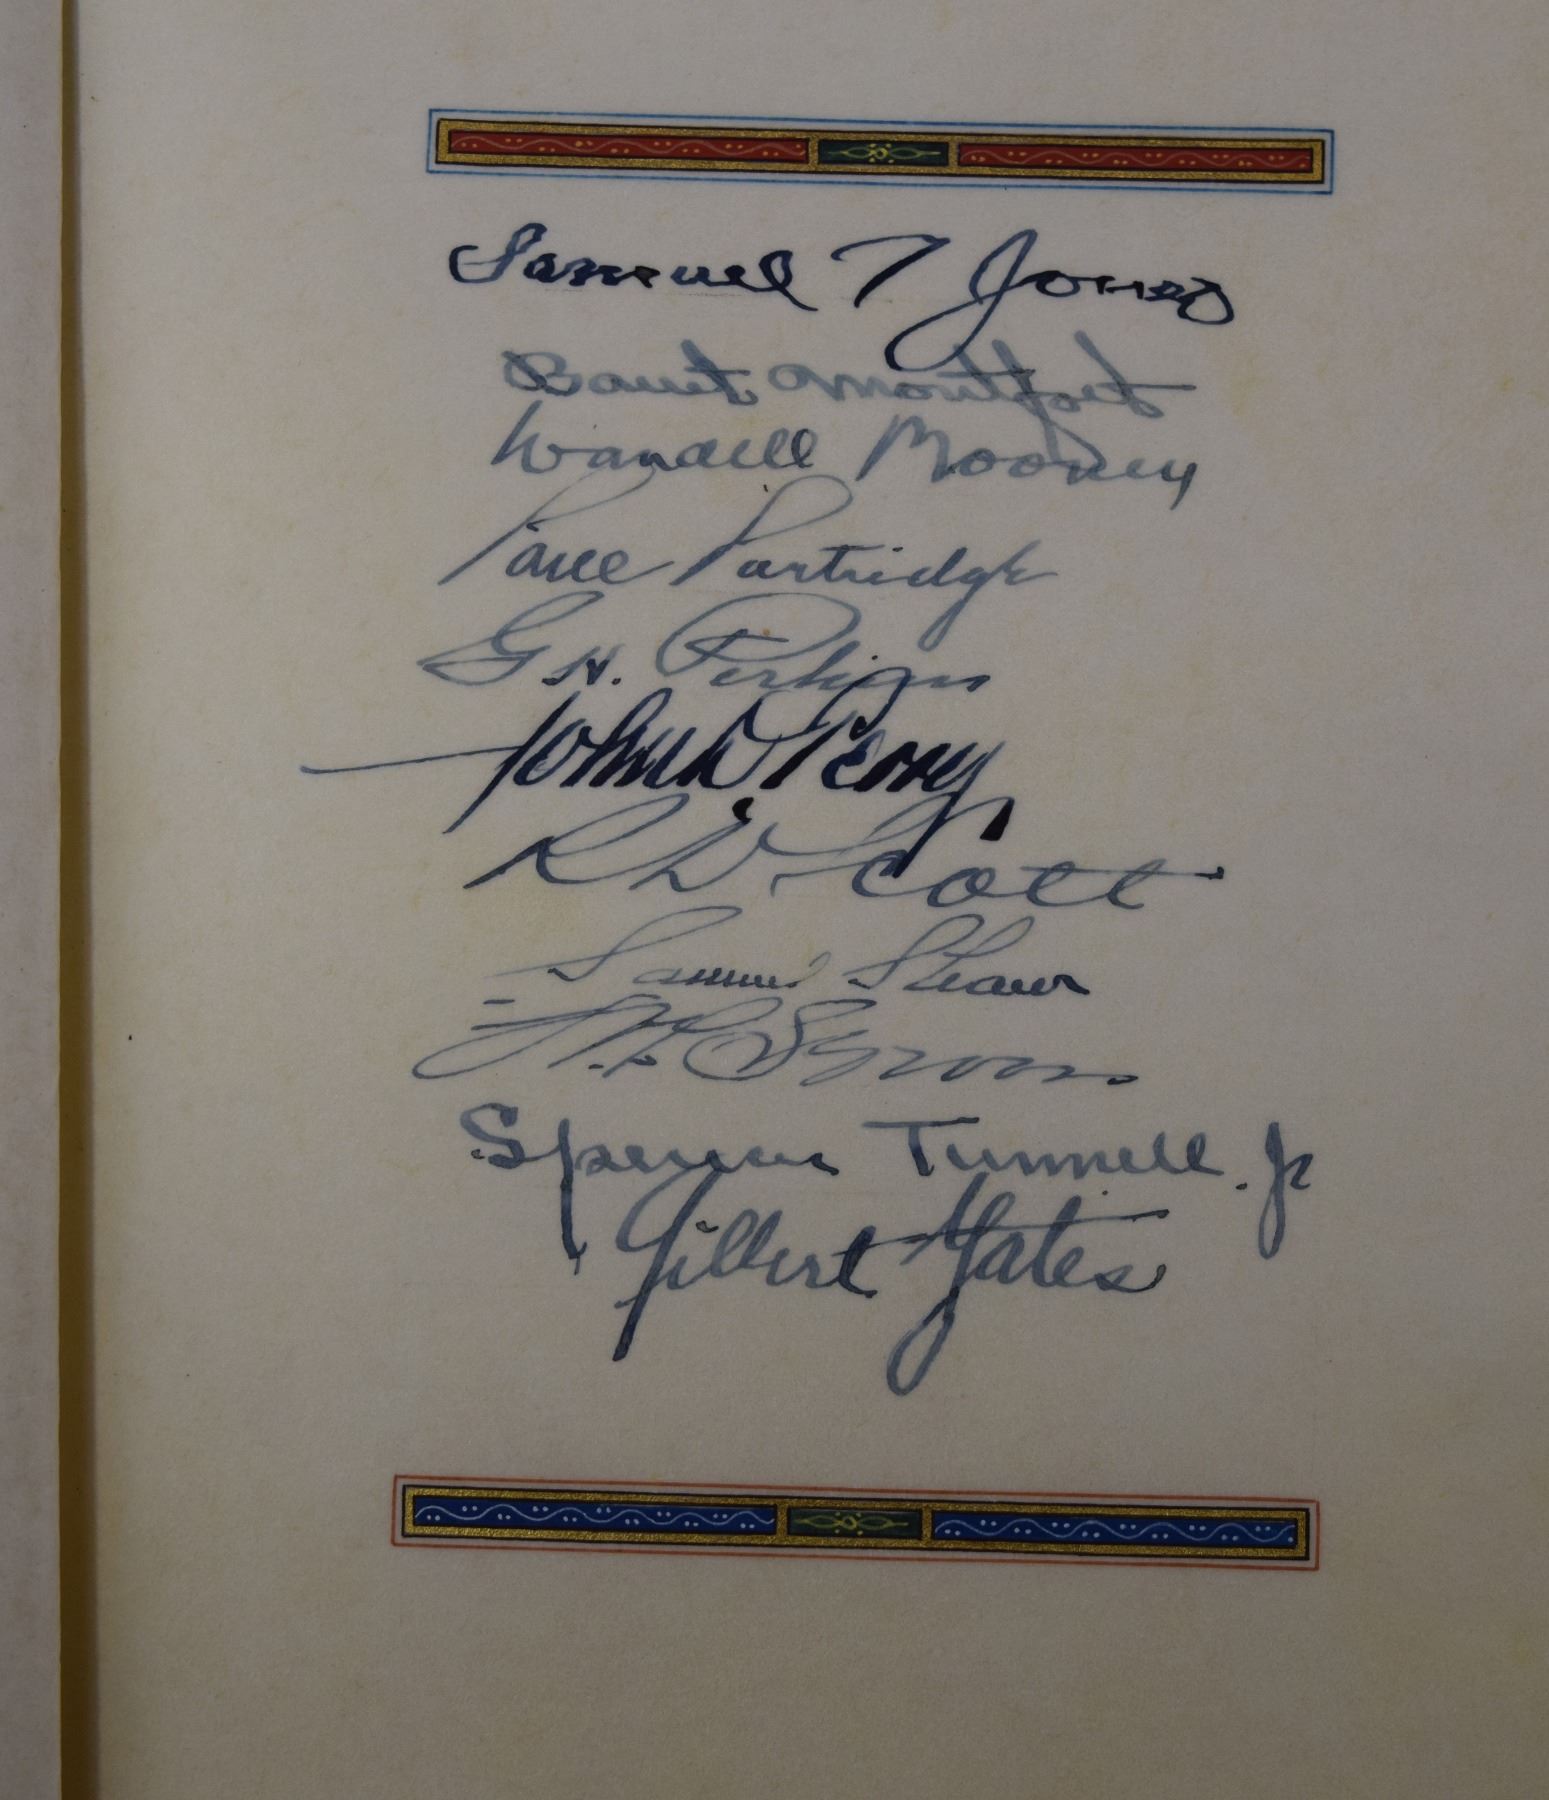 Samuel T Jones
Barret Montfort
Wandell Mooney
Partridge
G H. Perkins
John D Perry
R D Scott
Samuel Shaw
Spencer Tunnell. Jr
Gilbert Yates